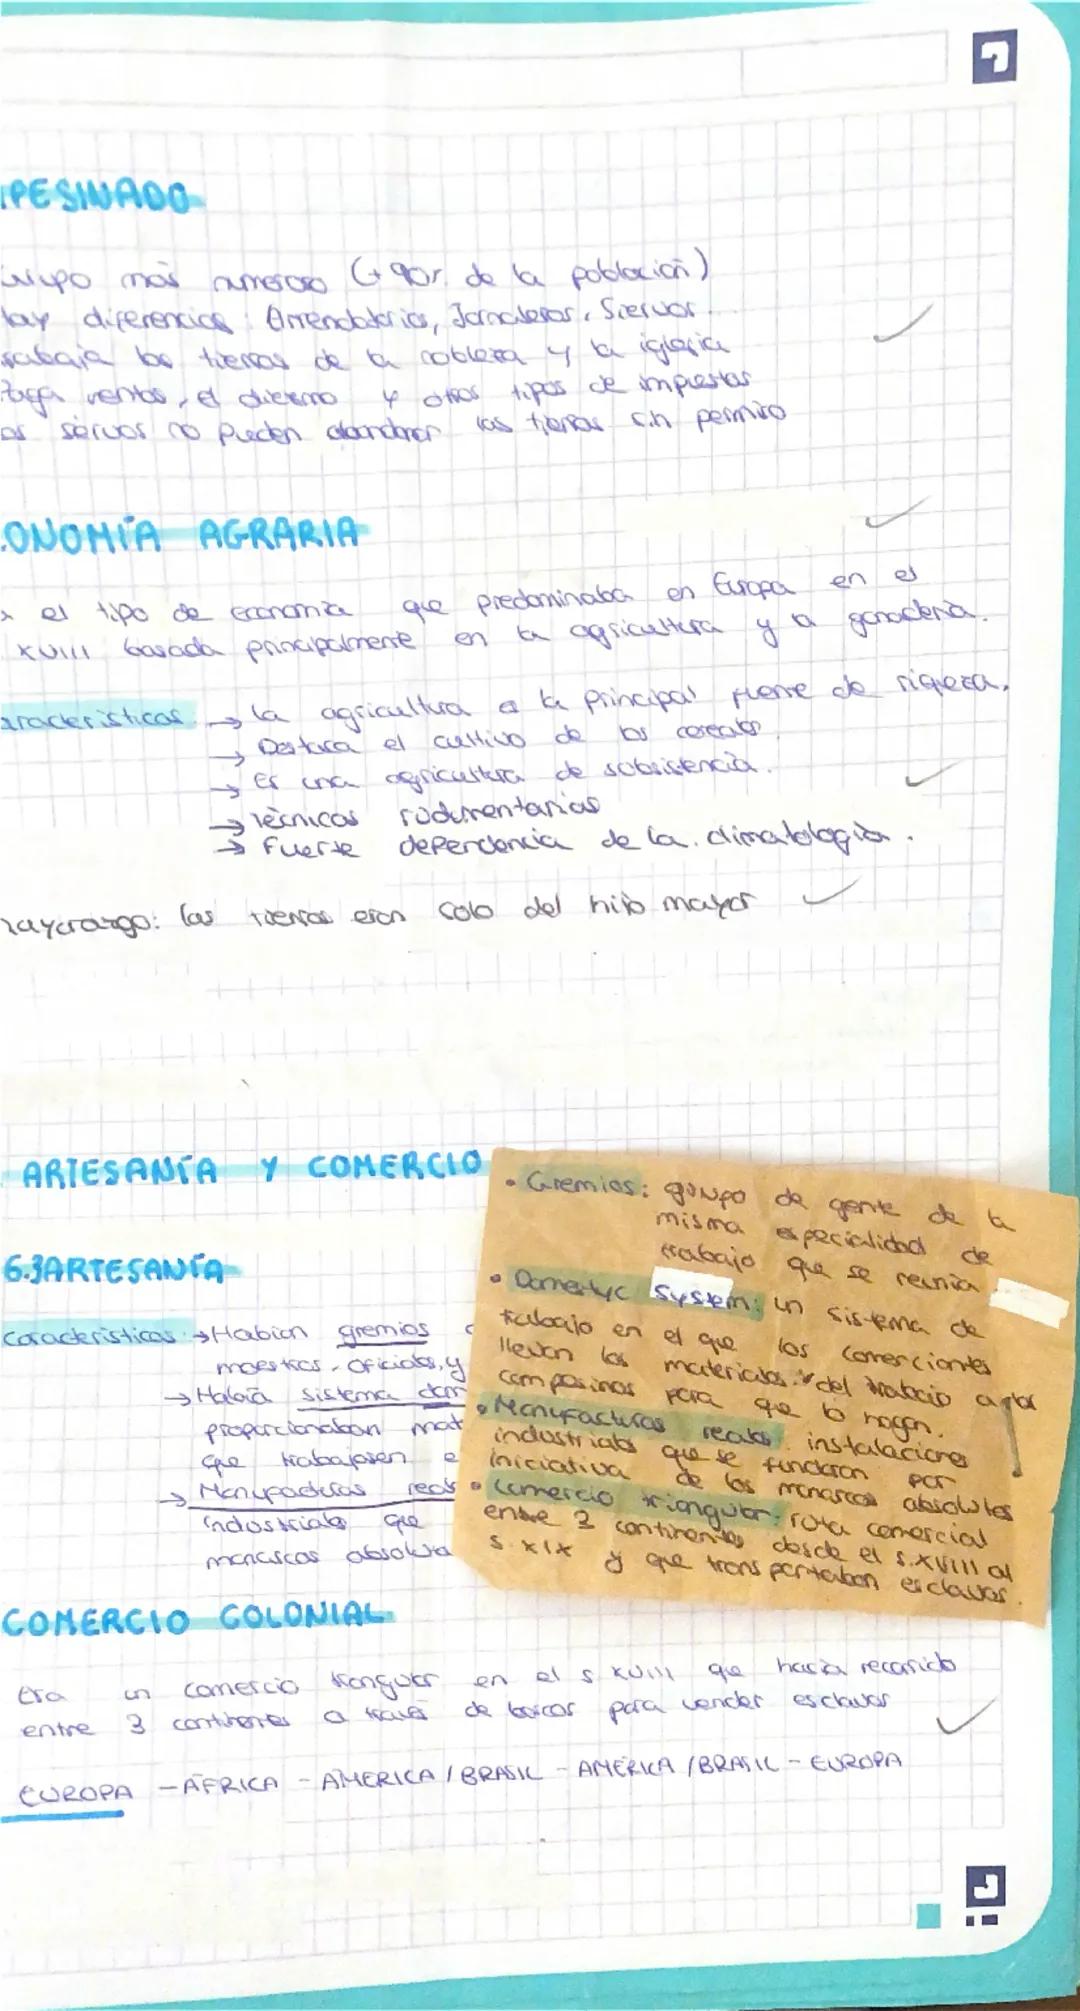 PESINADO
Grupo más numeroso (+90% de la población)
Hay diferencias: Arrendatarios, Jornaleros, Siervos.
trabaja las tierras de la nobleza y la iglesia
Paga rentas, el diezmo y otros tipos de impuestos
os siervos no pueden abandonar las tierras sin permiso
CONOMÍA AGRARIA
el tipo de economía que predominaba en Europa en el
XVIII basada principalmente en la agricultura y la ganadería.
aracterísticas → la agricultura es la principal fuente de riqueza.
→ Destaca el cultivo de los cereales.
→ Es una agricultura de subsistencia.
→ Técnicas rudimentarias
→ Fuerte dependencia de la climatología.
mayorazgo: las tierras eran solo del hijo mayor
ARTESANÍA Y COMERCIO
6.3 ARTESANÍA
Características: → Habían gremios
maestros, oficiales, y
→ Había sistema dom
proporcionaban mat
que trabajasen e
→ Manufacturas reals
industriales que
monarcas absoluta
• Gremios: grupo de gente de la
misma especialidad de
trabajo que se reunía
• Domestyc System: un sistema de
trabajo en el que los comerciantes
llevan los materiales del trabajo a los
campesinos para que lo hagan.
• Manufacturas reales: instalaciones
industriales que se fundaron por
iniciativa de los monarcas absolutos
• Comercio triangular: ruta comercial
entre 3 continentes desde el s.XVIII al
s.XIX y que transportaban esclavos.
COMERCIO COLONIAL
Era un comercio triangular en el s XVIII que hacía recorrido
entre 3 continentes a través de barcos para vender esclavos
EUROPA - ÁFRICA - AMÉRICA / BRASIL - AMÉRICA / BRASIL - EUROPA